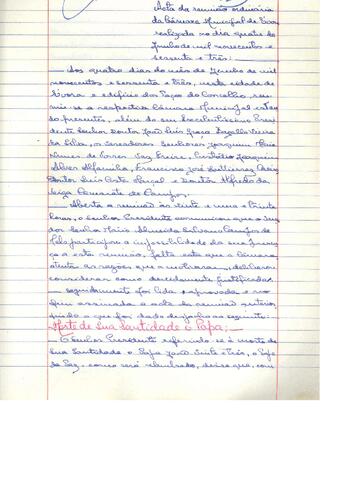 Acta da reunião ordinaria
da Câmara Municipal de Évora
realizada no dia quatro de
Junho de mil novecentos e
sessenta e três:
— Aos quatro dias do mês de Junho de mil
novecentos e sessenta e três, nesta cidade de
Évora e edifício dos Paços do Concelho, reu-
niu-se a respectiva Câmara Municipal estan-
do presentes, além do seu Excelentíssimo Presi-
dente Senhor Doutor João Luís
da Silva, os Vereadores Senhores Joaquim
Nunes de Torres Vaz Freire,
Alves Alfaminha, Francisco José
Doutor Luís e Doutor Alfredo da
Camarate de Campos.
— Aberta a reunião às vinte e uma e trinta
horas, o Senhor Presidente comunicou que o Verea-
dor Senhor Mário
participara a impossibilidade da sua presen-
ça a esta reunião, falta esta que a Câmara
atentas as razões que a motivaram, deliberou
considerar como devidamente justificada.
— Seguidamente foi lida, aprovada e
assinada a acta da reunião anterior
que foi dado despacho ao seguinte:
Morte de Sua Santidade o Papa:—
— O Senhor Presidente referindo-se à morte de
Sua Santidade o Papa João Vinte e Três, o Papa
da Paz, como será relembrado, disse que, com